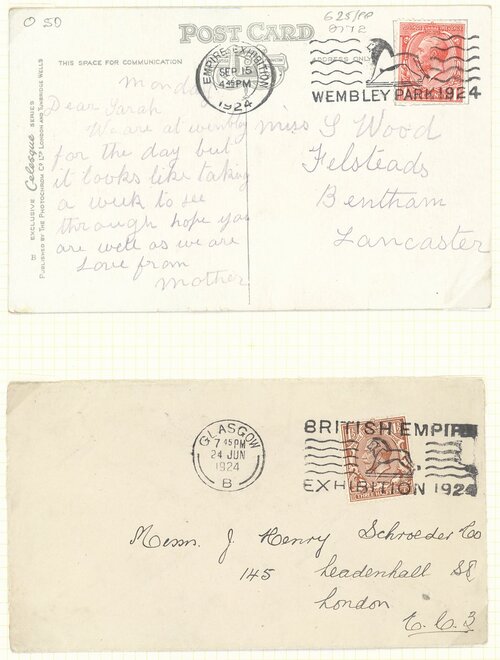 O 50
625/PP
POST CARD
THIS SPACE FOR COMMUNICATION
ADDRESS ONLY
EMPIRE EXHIBITION
SEP 15
4 45 PM
1924
WEMBLEY PARK 1924
EXCLUSIVE Celesque SERIES
PUBLISHED BY THE PHOTOCHROM CO LTD LONDON AND TUNBRIDGE WELLS
Monday
Dear Sarah
We are at wembly
for the day but
it looks like taking
a week to see
through hope you
are well as we are
Love from
Mother
Miss S Wood
Felsteads
Bentham
Lancaster
GLASGOW
7 45 PM
24 JUN
1924
B
BRITISH EMPIRE
EXHIBITION 1924
Messrs. J Henry Schroeder Co
145 Leadenhall St
London
E.C.3